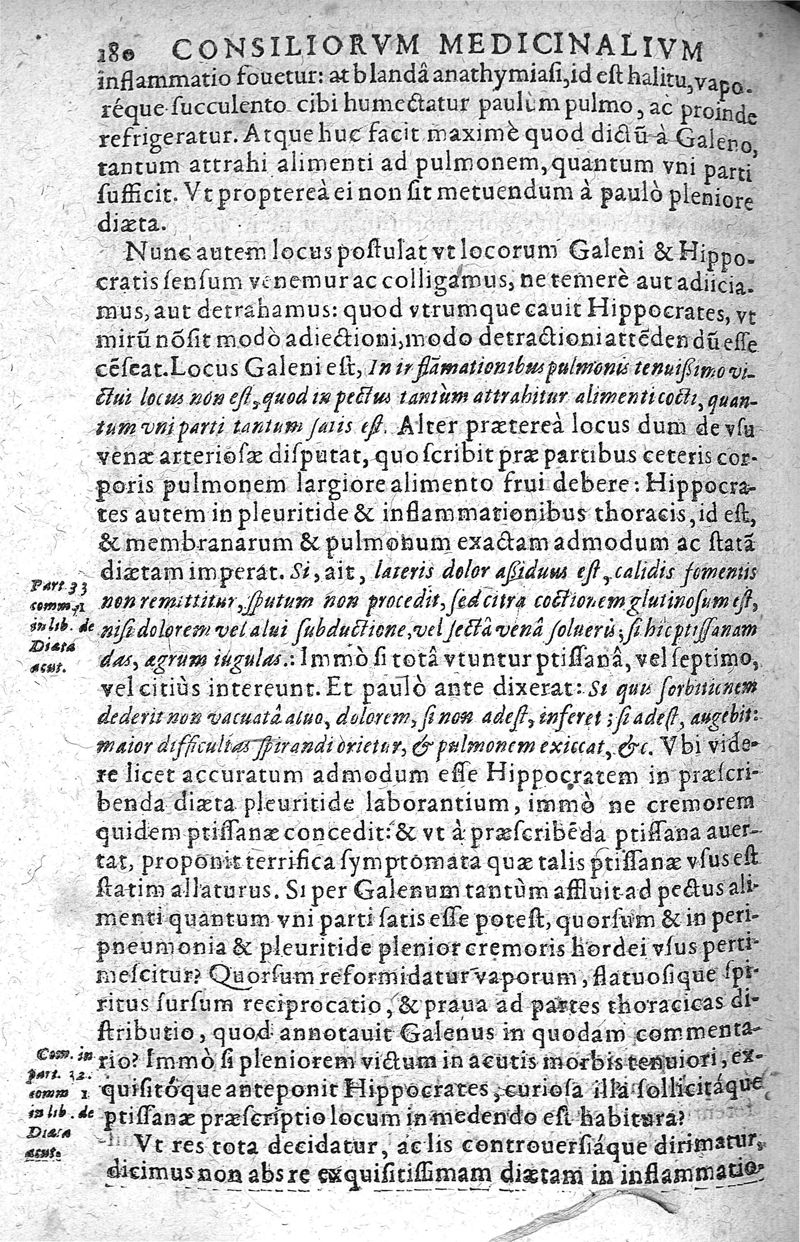 180 CONSILIORVM MEDICINALIVM
inflammatio fouetur: at blandâ anathymiasi, id est halitu, vapo-
réque succulento cibi humectatur paulùm pulmo, ac proinde
refrigeratur. Atque huc facit maximè quod dictũ à Galeno,
tantum attrahi alimenti ad pulmonem, quantum vni parti
sufficit. Vt proptereà ei non sit metuendum à paulò pleniore
diæta.
Nunc autem locus postulat vt locorum Galeni & Hippo-
cratis sensum venemur ac colligamus, ne temerè aut adiicia-
mus, aut detrahamus: quod vtrumque cauit Hippocrates, vt
mirũ nõ sit modò adiectioni, modo detractioni attẽdendũ esse
cẽseat. Locus Galeni est, In inflãmationibus pulmonis tenuißimo vi-
ctui locus non est, quod in pectus tantùm attrahitur alimenti cocti, quan-
tum vni parti tantum satis est. Alter prætereà locus dum de vsu
venæ arteriosæ disputat, quo scribit præ partibus ceteris cor-
poris pulmonem largiore alimento frui debere: Hippocra-
tes autem in pleuritide & inflammationibus thoracis, id est,
& membranarum & pulmonum exactam admodum ac statã
diætam imperat. Si, ait, lateris dolor aßiduus est, calidis fomentis
non remittitur, sputum non procedit, sed citra coctionem glutinosum est,
nisi dolorem vel alui subductione, vel sectâ venâ solueris; si hic ptissanam
das, ægrum iugulas.: Immò si totâ vtuntur ptissanâ, vel septimo,
vel citiùs intereunt. Et paulò ante dixerat: Si quis sorbitionem
dederit non vacuatâ aluo, dolorem, si non adest, inferet; si adest, augebit:
maior difficultas spirandi orietur, & pulmonem exiccat, &c. Vbi vide-
re licet accuratum admodum esse Hippocratem in præscri-
benda diæta pleuritide laborantium, immò ne cremorem
quidem ptissanæ concedit: & vt à præscribẽda ptissana auer-
tat, proponit terrifica symptomata quæ talis ptissanæ vsus est
statim allaturus. Si per Galenum tantùm affluit ad pectus ali-
menti quantum vni parti satis esse potest, quorsum & in peri-
pneumonia & pleuritide plenior cremoris hordei vsus perti-
mescitur? Quorsum reformidatur vaporum, flatuosique spi-
ritus sursum reciprocatio, & praua ad partes thoracicas di-
stributio, quod annotauit Galenus in quodam commenta-
rio? Immò si pleniorem victum in acutis morbis tenuiori, ex-
quisitóque anteponit Hippocrates, curiosa illa sollicitáque
ptissanæ præscriptio locum in medendo est habitura?
Vt res tota decidatur, ac lis controuersiáque dirimatur,
dicimus non abs re exquisitissimam diætam in inflammatio-
Part. 33
comm. 1
in lib. de
Diæta
acut.
Com. in
part. 32.
comm 1
in lib. de
Diæta
acut.